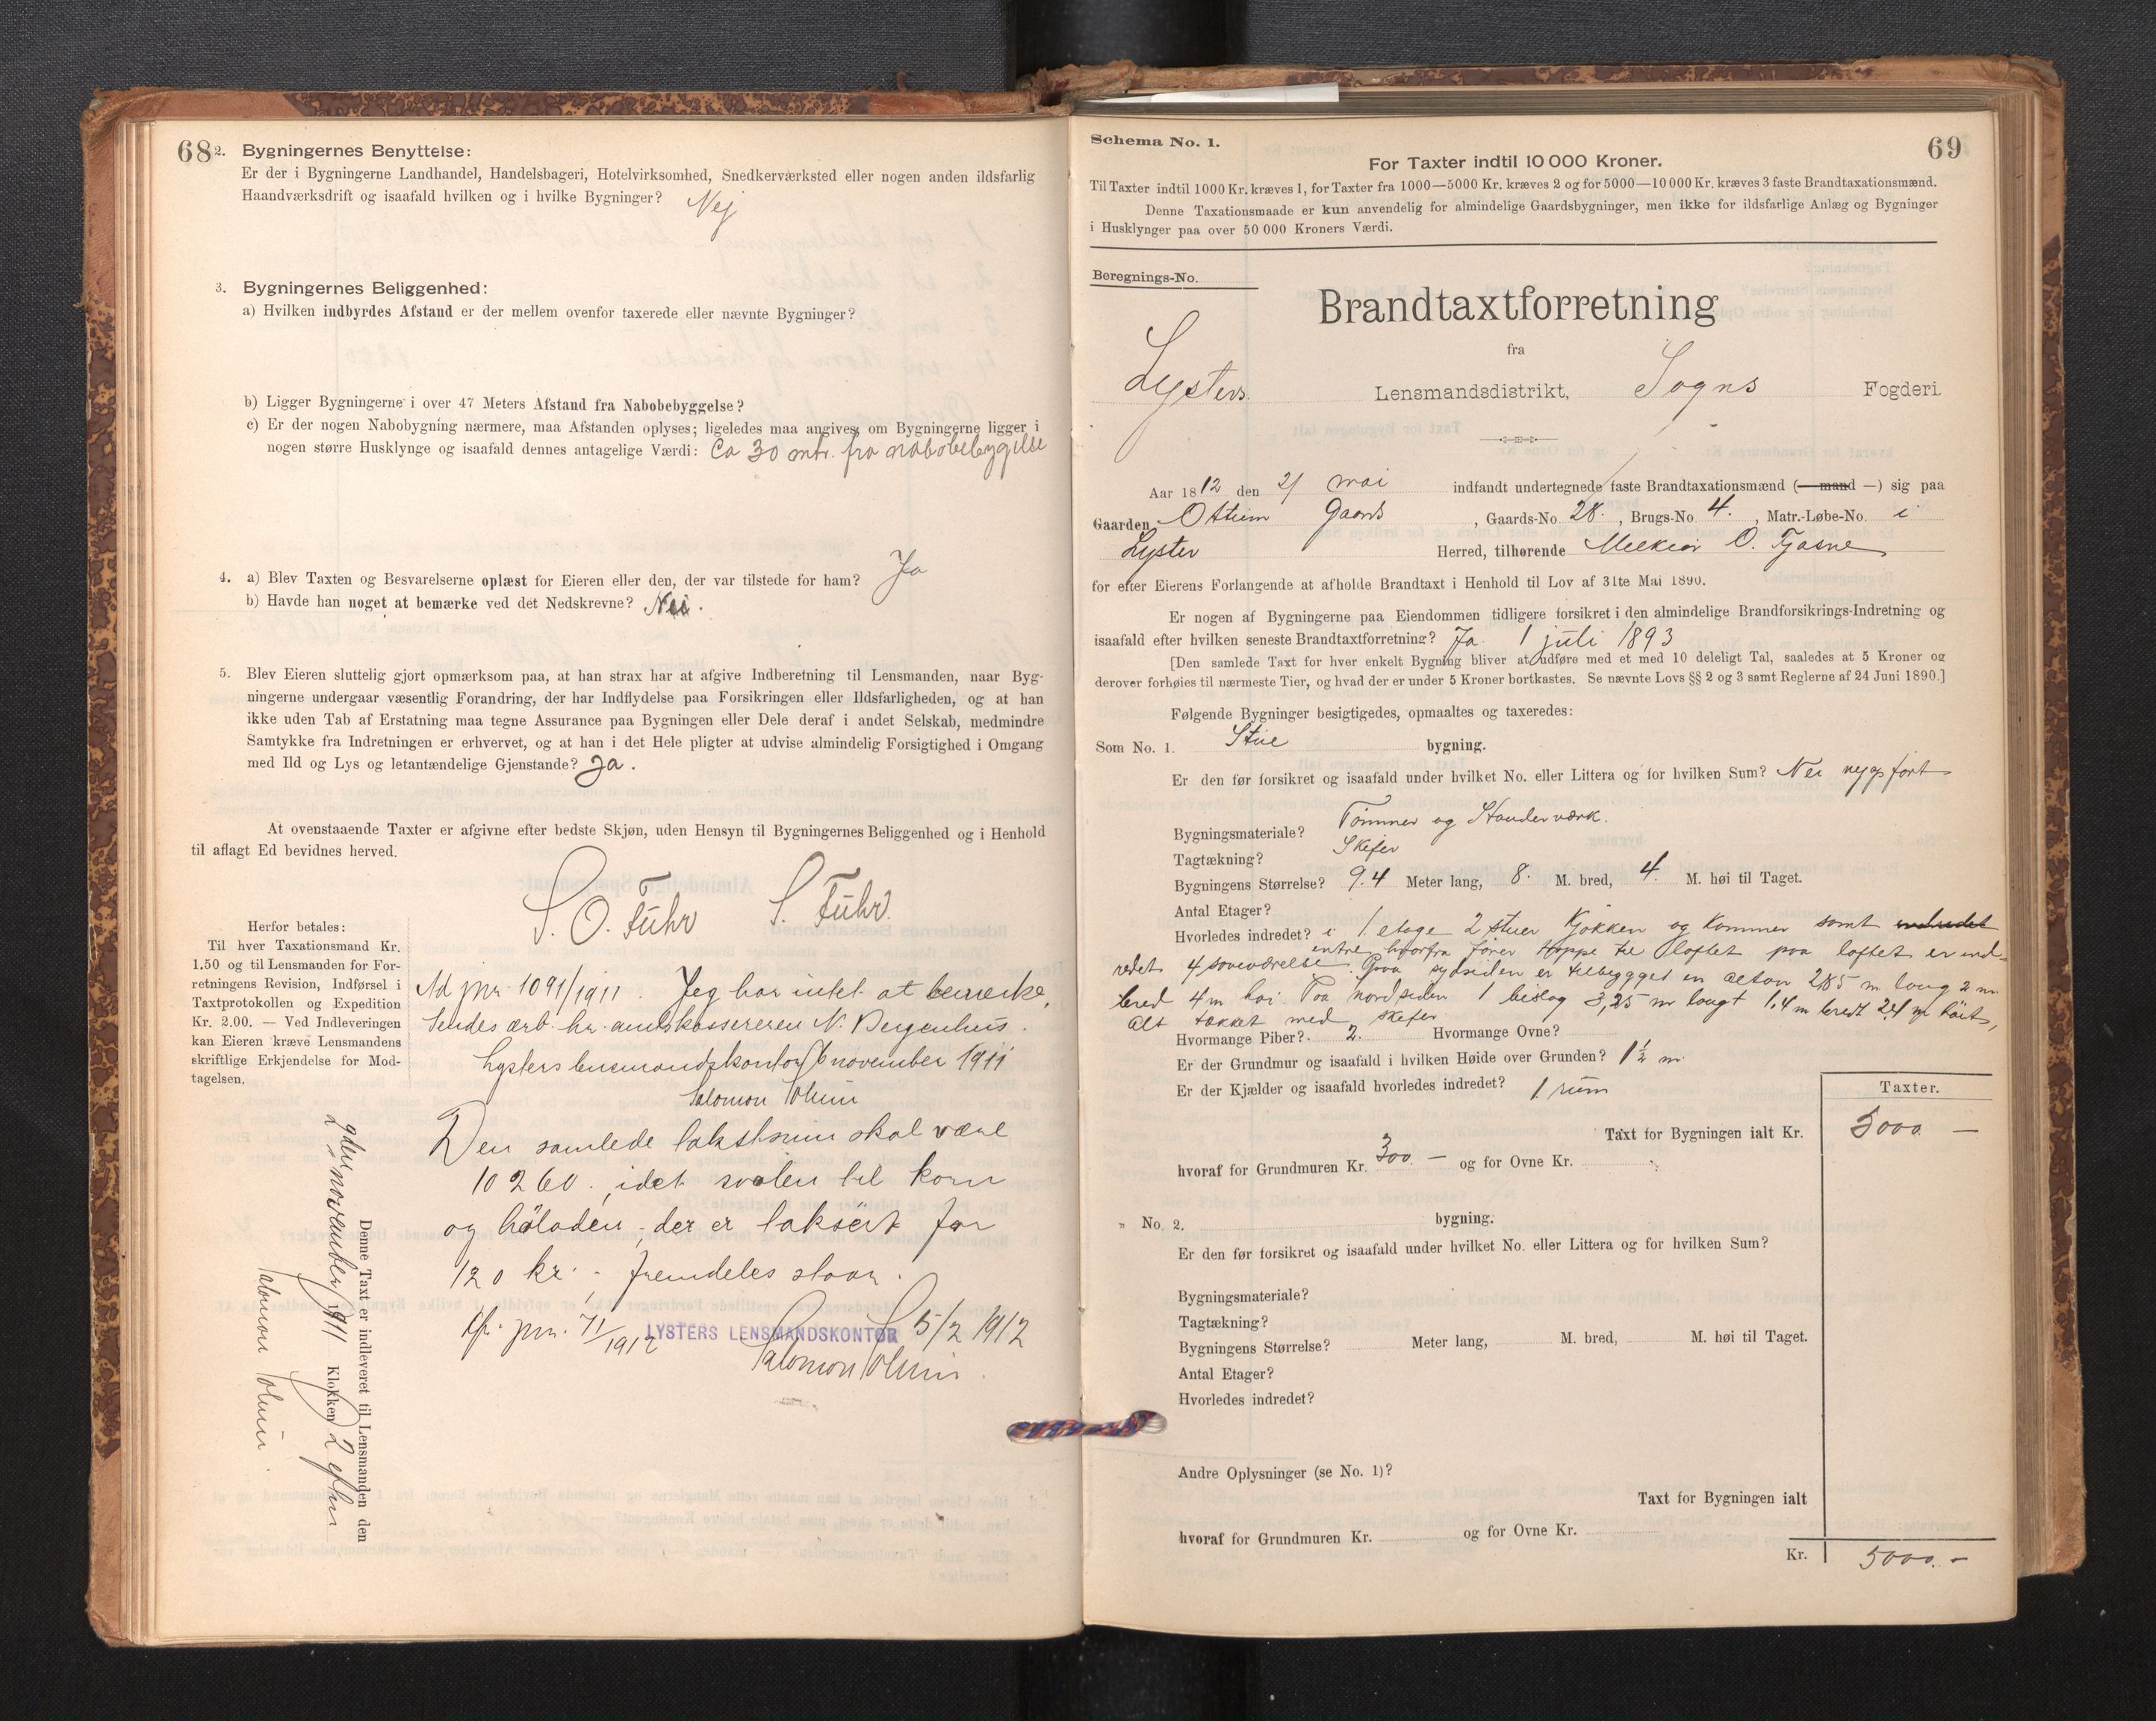 68
2. Bygningernes Benyttelse:
Er der i Bygningerne Landhandel, Handelsbageri, Hotelvirksomhed, Snedkerværksted eller nogen anden ildsfarlig
Haandværksdrift og isaafald hvilken og i hvilke Bygninger? Nej
3. Bygningernes Beliggenhed:
a) Hvilken indbyrdes Afstand er der mellem ovenfor taxerede eller nævnte Bygninger?
b) Ligger Bygningerne i over 47 Meters Afstand fra Nabobebyggelse?
c) Er der nogen Nabobygning nærmere, maa Afstanden oplyses; ligeledes maa angives, om Bygningerne ligger i
nogen større Husklynge og isaafald dennes antagelige Værdi: Ca 30 mtr. fra nabobebygelse
4. a) Blev Taxten og Besvarelserne oplæst for Eieren eller den, der var tilstede for ham? Ja
b) Havde han noget at bemærke ved det Nedskrevne? Nei.
5. Blev Eieren sluttelig gjort opmærksom paa, at han strax har at afgive Indberetning til Lensmanden, naar Byg-
ningerne undergaar væsentlig Forandring, der har Indflydelse paa Forsikringen eller Ildsfarligheden, og at han
ikke uden Tab af Erstatning maa tegne Assurance paa Bygningen eller Dele deraf i andet Selskab, medmindre
Samtykke fra Indretningen er erhvervet, og at han i det Hele pligter at udvise almindelig Forsigtighed i Omgang
med Ild og Lys og letantændelige Gjenstande? Ja.
At ovenstaaende Taxter er afgivne efter bedste Skjøn, uden Hensyn til Bygningernes Beliggenhed og i Henhold
til aflagt Ed bevidnes herved.
S. O. Fuhr S. Fuhr.
Herfor betales:
Til hver Taxationsmand Kr.
1.50 og til Lensmanden for For-
retningens Revision, Indførsel i
Taxtprotokollen og Expedition
Kr. 2.00. — Ved Indleveringen
kan Eieren kræve Lensmandens
skriftlige Erkjendelse for Mod-
tagelsen.
Ad jnr. 1091/1911. Jeg har intet at bemerke.
Sendes ærb. hr. amtskassereren N. Bergenhus.
Lysters lensmandskontor 6 november 1911
Salomon
Den samlede takstsum skal være
10260, idet svalen til korn
og høladen, der er taksert for
120 kr., fremdeles staar.
Kfr. jnr. 71/1912 LYSTERS LENSMANDSKONTOR 5/2 1912
Salomon
Denne Taxt er indleveret til Lensmanden den
november 1911 Klokken 2 efter
Salomon
69
Schema No. 1.
For Taxter indtil 10 000 Kroner.
Til Taxter indtil 1000 Kr. kræves 1, for Taxter fra 1000—5000 Kr. kræves 2 og for 5000—10 000 Kr. kræves 3 faste Brandtaxationsmænd.
Denne Taxationsmaade er kun anvendelig for almindelige Gaardsbygninger, men ikke for ildsfarlige Anlæg og Bygninger
i Husklynger paa over 50 000 Kroners Værdi.
Beregnings-No.
Brandtaxtforretning
fra
Lysters Lensmandsdistrikt, Sogns Fogderi.
Aar 1812 den 21 mai indfandt undertegnede faste Brandtaxationsmænd (— mand —) sig paa
Gaarden Ottum Gaard, Gaards-No. 28., Brugs-No. 4., Matr.-Løbe-No. i
Lyster Herred, tilhørende Melkior O. Fjøsne
for efter Eierens Forlangende at afholde Brandtaxt i Henhold til Lov af 31te Mai 1890.
Er nogen af Bygningerne paa Eiendommen tidligere forsikret i den almindelige Brandforsikrings-Indretning og
isaafald efter hvilken seneste Brandtaxtforretning? Ja 1 juli 1893
[Den samlede Taxt for hver enkelt Bygning bliver at udføre med et med 10 deleligt Tal, saaledes at 5 Kroner og
derover forhøies til nærmeste Tier, og hvad der er under 5 Kroner bortkastes. Se nævnte Lovs §§ 2 og 3 samt Reglerne af 24 Juni 1890.]
Følgende Bygninger besigtigedes, opmaaltes og taxeredes:
Som No. 1. Stue bygning.
Er den før forsikret og isaafald under hvilket No. eller Littera og for hvilken Sum? Nei nyopført
Bygningsmateriale? Tømmer og Standerværk.
Tagtækning? Skifer
Bygningens Størrelse? 9.4 Meter lang, 8. M. bred, 4. M. høi til Taget.
Antal Etager?
Hvorledes indredet? i 1 etage 2 stuer Kjøkken og Kammer samt indredet
entre hvorfra fører trappe til loftet paa loftet er ind-
redet 4 soveværelse. Paa sydsiden er tilbygget en altan 2,85 m lang 2 m
bred 4 m høi. Paa nordsiden 1 bislag 3,25 m langt 1,4 m bredt 2,4 m høit,
alt tækket med skifer
Hvormange Piber? 2. Hvormange Ovne?
Er der Grundmur og isaafald i hvilken Høide over Grunden? 1½ m.
Er der Kjælder og isaafald hvorledes indredet? 1 rum
Taxter.
Taxt for Bygningen ialt Kr. 5000 —
hvoraf for Grundmuren Kr. 300 — og for Ovne Kr.
" No. 2. bygning.
Er den før forsikret og isaafald under hvilket No. eller Littera og for hvilken Sum?
Bygningsmateriale?
Tagtækning?
Bygningens Størrelse? Meter lang, M. bred, M. høi til Taget.
Antal Etager?
Hvorledes indredet?
Andre Oplysninger (se No. 1)?
Taxt for Bygningen ialt
hvoraf for Grundmuren Kr. og for Ovne Kr.
Kr. 5000.-